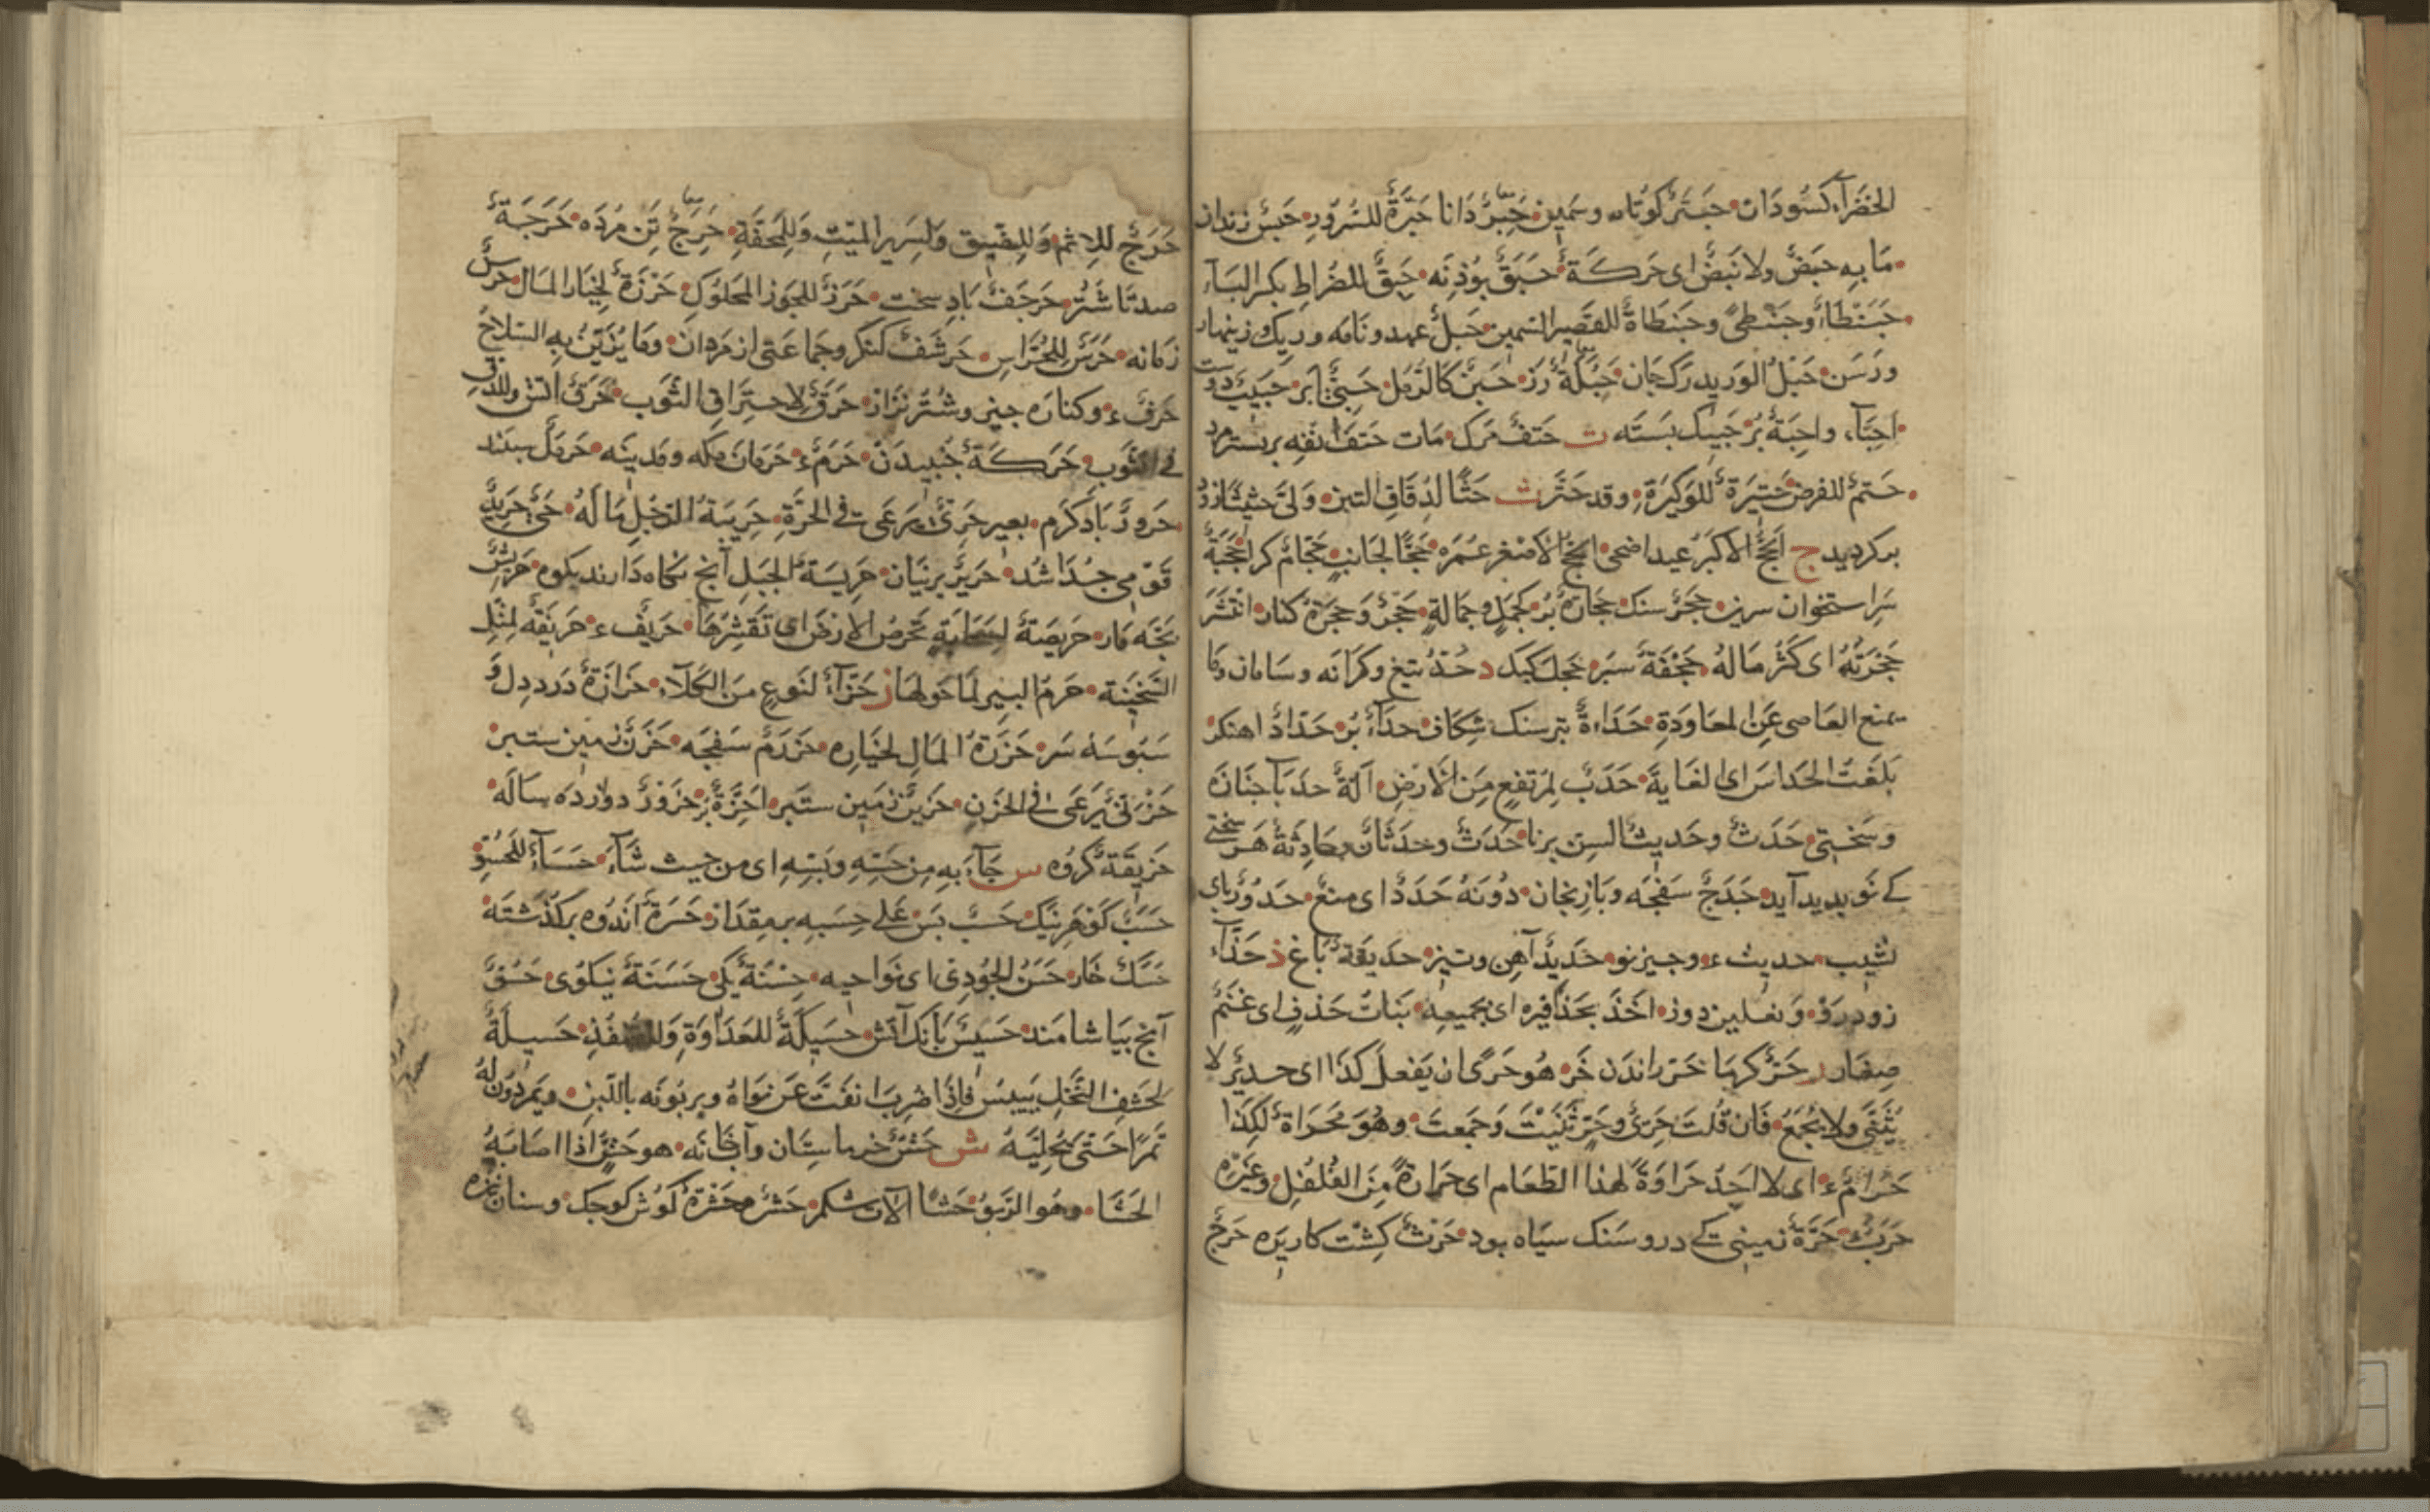 الخضراء كسودان حبتر كوتاه وسمين حبر دانا حبرة للسرور حبس زندان
ما به حبض ولا نبض اى حركة حبق بوذنه حبق للضراط بكسر الباء
حبنطأ وحبنطى وحبنطاة للقصير السمين حبل عهد ونامه وريك وزينهار
ورسن حبل الوريد رك جان حبلة رز حبن كالدمل حبى ابر حبيب دوست
احباء واحبة بر حبيك بسته ت حتف مرك مات حتف انفه بر بستر مرد
حتم للفرض حتيرة للوكيرة وقد حتر ث حثا لدقاق التبن ولى حثيثا زود
بركرديد ج الحج الاكبر عيد اضحى الحج الاصغر عمره حجا لجانب حجام كرا حجبة
سر استخوان سرين حجر سنك حجارة بر كجمل وجمالة حجر وحجرة كنار انتشر
حجرته اى كثر ماله حجفة سبر حجل كبك د حد تيغ وكرانه وسامان وما
يمنع العاصى عن المعاودة حداءة تبر سنك شكاف حداء بر حداد اهنكر
بلغت الحداس اى الغاية حدب لمرتفع من الارض آلة حدبا جنازه
وسختى حدث وحديث السن برنا حدث وحدثان وحادثة هر سختى
كى نو پديد آيد حدج سفجه وبازنجان دونه حدد اى منع حدور باى
نشيب حديث ء وجيز نو حديد آهن وتيز حديقة باغ ذ حذاء
زودرو ونعلين دوز اخذ بحذافيره اى بجميعه بنات حذف اى غنم
صغار ر حر كرما خر راندن خر هو حرى ان يفعل كذا اى جدير لا
يثنى ولا يجمع فان قلت حرى وحر ثنيت وجمعت وهو محراة لكذا
حرام ء اى لا احد حراوة لهذا الطعام اى حرارة من الفلفل وغيره
حرب حرة زمينى كى درو سنك سياه بود حرث كشت كاريزه حرج
حرج للاثم وللضيق ولسرير الميت وللمحفة حرج تن مرده حرجة
صد تا شتر حرجف باد سخت حرز للجوز المحلوك حرزة لخيار المال حرس
زمانه حرس للحراس حرشف كنكر وجماعتى از مردان وما يزين به السلاح
حرف ء وكناره جيز وشتر نزار حرق لاحتراق الثوب حرق آتش وللدق
فى الثوب حركة جنبيدن حرم ء حرمان مكه ومدينه حرمل سبند
حرور باد كرم بعير حرى يرعى فى الحرة حريبة الرجل ماله حى حريد
قومى جدا شد حرير برنيان حريسة الجبل آنج نكاه دارند بكوه حريش
نخه مار حريصة لسحابة تحرص الارض اى تقشرها حريف ء حريقة لمثل
السخينة حرم البير لما حولها ز حزاء لنوع من الكلاء حزازة درد دل و
سبوسه سر حزرة المال لخياره حزدم سفجه حزن زمين ستبر
حزنى يرعى فى الحزن حزين زمين ستبر احزة بر حزور دوازده ساله
حزيقة كروه س جاء به من حسه وبسه اى من حيث شاء حساء للحسو
حسب كوهر نيك حسب بس على حسبه بر مقدار حسرة اندوه بر كذشته
حسك خار حسن الجودى اى نواحيه حسنة يكى حسنة نيكوى حسو
آنج بياشامند حسيس بانك آتش حسيكة للعداوة وللقنفذ حسيلة
لحشف النخل ييبس فاذا ضرب انفت عن نواه ويربونه باللبن ويمردون له
تمرا حتى يحليه ش حش خرماستان وآبخانه هو حش اذا اصابه
الحشا وهو الربو حشا الات شكم حشر محشرة كوش كوجك وسنان نيزه